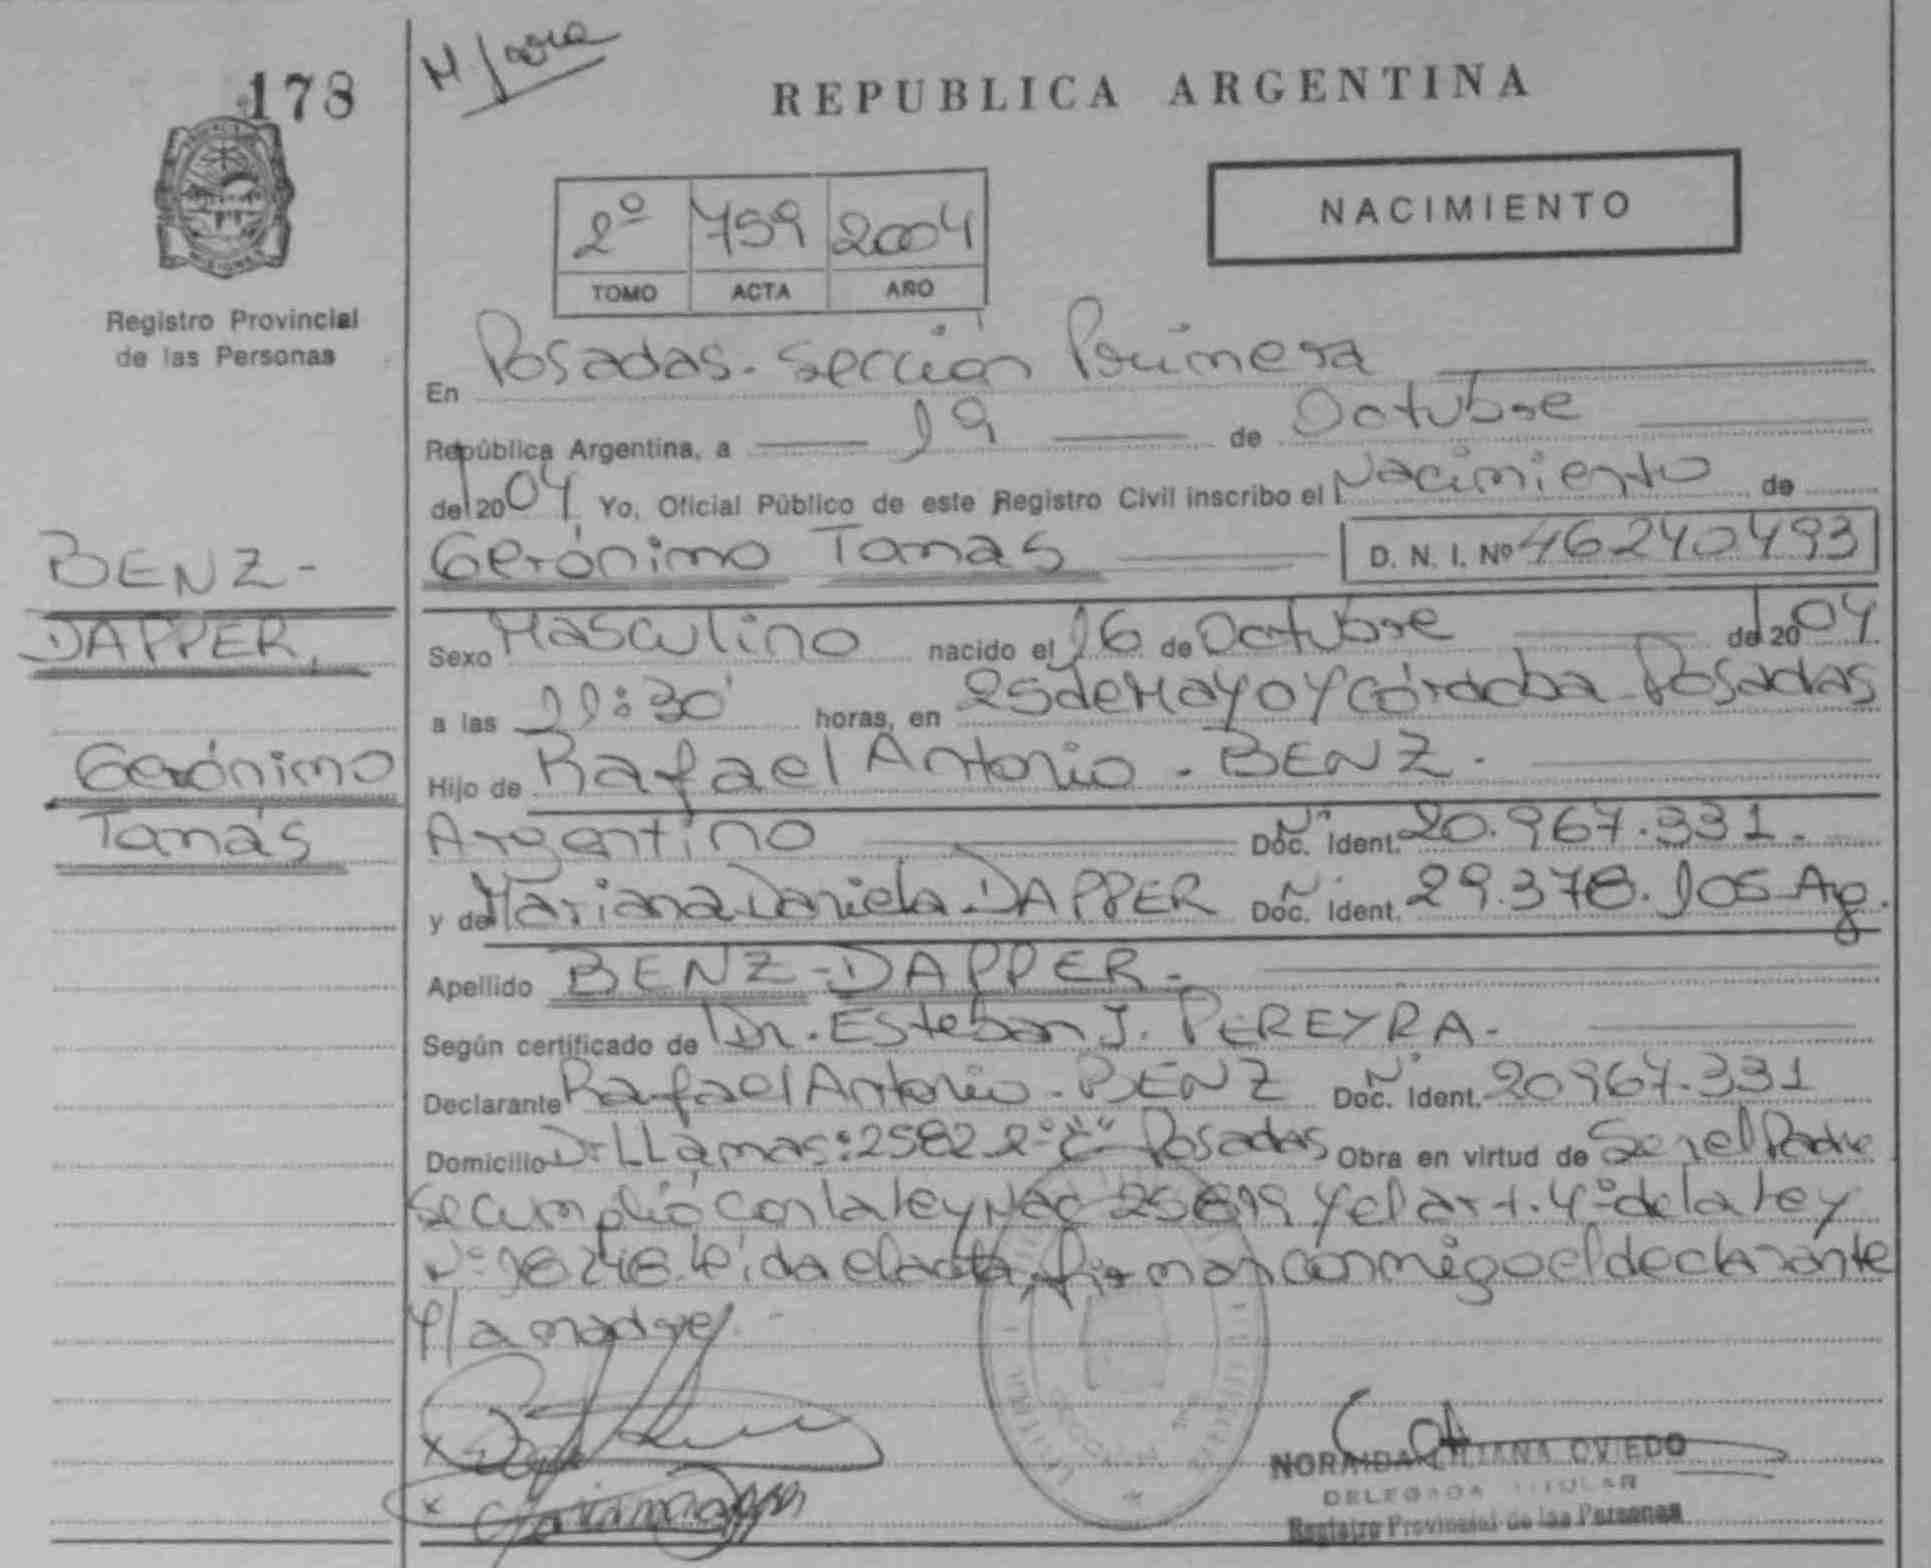 178
REPUBLICA ARGENTINA
NACIMIENTO
2º 759 2004
TOMO ACTA AÑO
Registro Provincial
de las Personas
En Posadas. Sección Primera
República Argentina, a 19 de Octubre
del 2004 Yo, Oficial Público de este Registro Civil inscribo el Nacimiento de
Gerónimo Tomas D. N. I. Nº 46240493
BENZ-
DAPPER,
Gerónimo
Tomás
Sexo Masculino nacido el 16 de Octubre del 2004
a las 11:30 horas, en 25 de Mayo y Córdoba Posadas
Hijo de Rafael Antonio. BENZ.
Argentino Nº Doc. Ident. 20.967.331.
y de Mariana Daniela. DAPPER Nº Doc. Ident. 29.378.105 Arg.
Apellido BENZ-DAPPER-
Según certificado de Dr. Esteban J. PEREYRA-
Declarante Rafael Antonio. BENZ Nº Doc. Ident. 20967.331
Domicilio Dr LLamas: 2582 2º "C" Posadas Obra en virtud de Ser el Padre
Se cumplió con la ley Nac 25819 y el art. 4º de la ley
Nº 18248. leída el acta, firman conmigo el declarante
y la madre.
NORAIDA LILIANA OVIEDO
DELEGADA TITULAR
Registro Provincial de las Personas